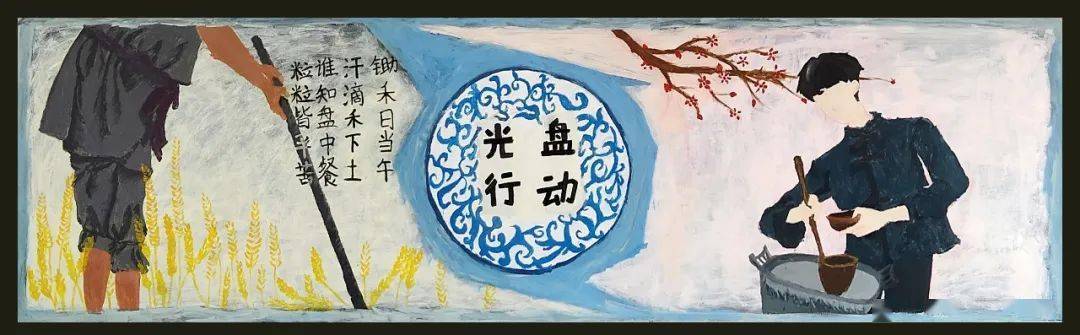 锄禾日当午
汗滴禾下土
谁知盘中餐
粒粒皆辛苦
光盘
行动